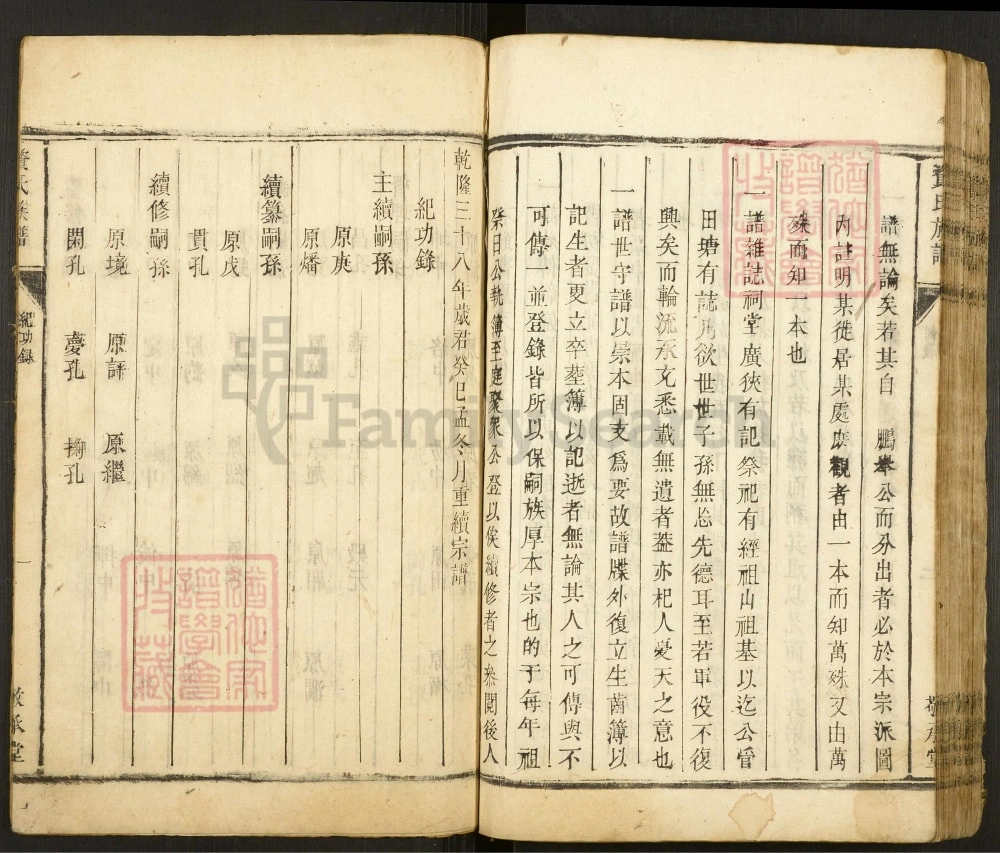 氏族譜
譜無論矣若其自　鵬舉公而分出者必於本宗派圖
內註明某徙居某處庶觀者由一本而知萬殊又由萬
殊而知一本也
一譜雜誌祠堂廣狹有記祭祀有經祖山祖基以迄公管
田塘有誌凡欲世世子孫無忘先德耳至若軍役不復
興矣而輪流承充悉載無遺者蓋亦杞人憂天之意也
一譜世守譜以崇本固支爲要故譜牒外復立生齒簿以
記生者更立卒塟簿以記逝者無論其人之可傳與不
可傳一並登錄皆所以保嗣族厚本宗也的于每年祖
祭日公執簿至庭聚衆公登以俟續修者之參閱後人
乾隆三十八年歲君癸巳孟冬月重續宗譜
紀功錄
主續嗣孫
原庚
原燔
續纂嗣孫
原戊
貫孔
續修嗣孫
原境　原評　原繼
閑孔　慶孔　掬孔
氏族譜　紀功錄　一　敬承堂
FamilySearch